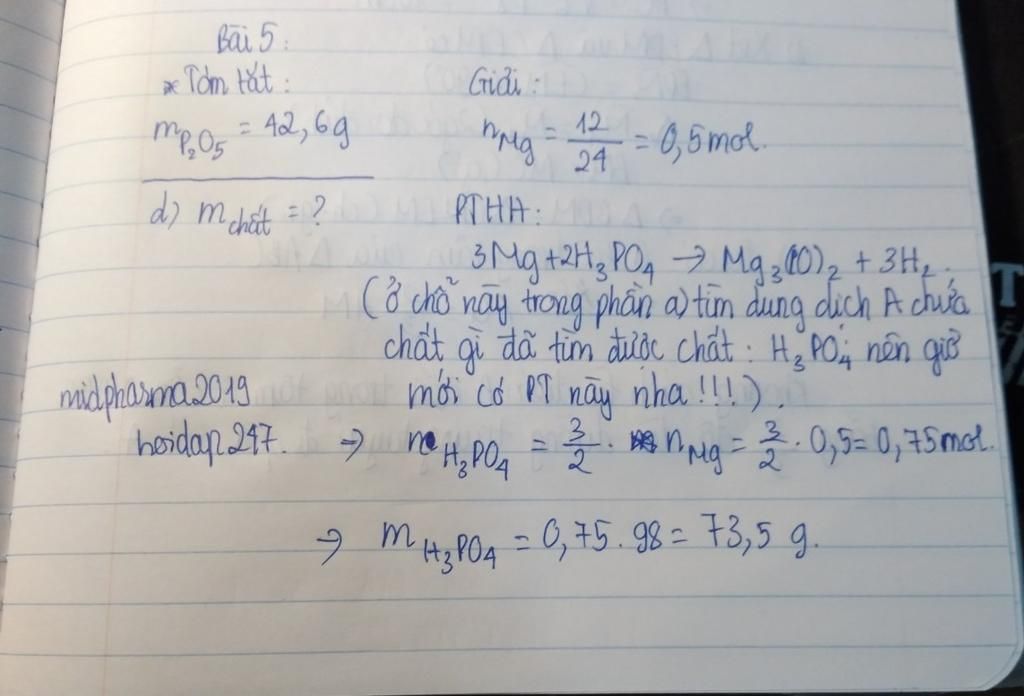 Bài 5:
* Tóm tắt:
Giải:
mP₂O₅ = 42,6g
nMg = 12/24 = 0,5mol.
d) m chất = ?
PTHH:
3Mg+2H₃PO₄ → Mg₃(PO)₂ + 3H₂.
(Ở chỗ này trong phần a) tìm dung dịch A chứa
chất gì đã tìm được chất: H₃PO₄ nên giờ
mới có PT này nha!!!).
midpharma2019
hoidap247.
⇒ nH₃PO₄ = 3/2 . nMg = 3/2 . 0,5 = 0,75mol.
⇒ mH₃PO₄ = 0,75 . 98 = 73,5 g.